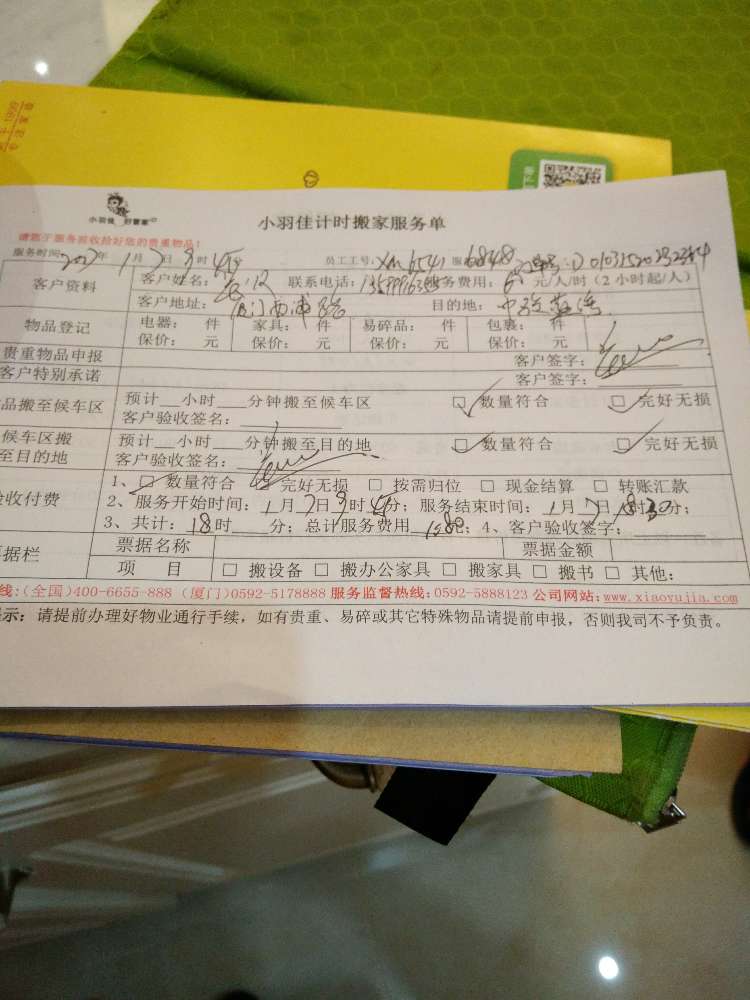 小羽佳 好管家
小羽佳计时搬家服务单
请您于服务验收拾好您的贵重物品!
服务时间: 年1月7日9时45分 员工工号: XM6541 服 68848
客户资料
客户姓名: 联系电话: 服务费用: 元/人/时(2小时起/人)
客户地址: 厦门西浦路 目的地:
物品登记
电器: 件 家具: 件 易碎品: 件 包裹: 件
保价: 元 保价: 元 保价: 元 保价: 元
贵重物品申报 客户签字:
客户特别承诺 客户签字:
品搬至候车区
预计__小时___分钟搬至候车区 数量符合 完好无损
客户验收签名:
候车区搬至目的地
预计__小时___分钟搬至目的地 数量符合 完好无损
客户验收签名:
验收付费
1、 数量符合 完好无损 按需归位 现金结算 转账汇款
2、服务开始时间: 1月7日9时45分; 服务结束时间: 1月7日18时30分;
3、共计: 18时___分; 总计服务费用 元; 4、客户验收签字:
据栏
票据名称 票据金额
项 目 搬设备 搬办公家具 搬家具 搬书 其他:
线:(全国)400-6655-888 (厦门)0592-5178888 服务监督热线:0592-5888123 公司网站:www.xiaoyujia.com
示: 请提前办理好物业通行手续, 如有贵重、易碎或其它特殊物品请提前申报, 否则我司不予负责。